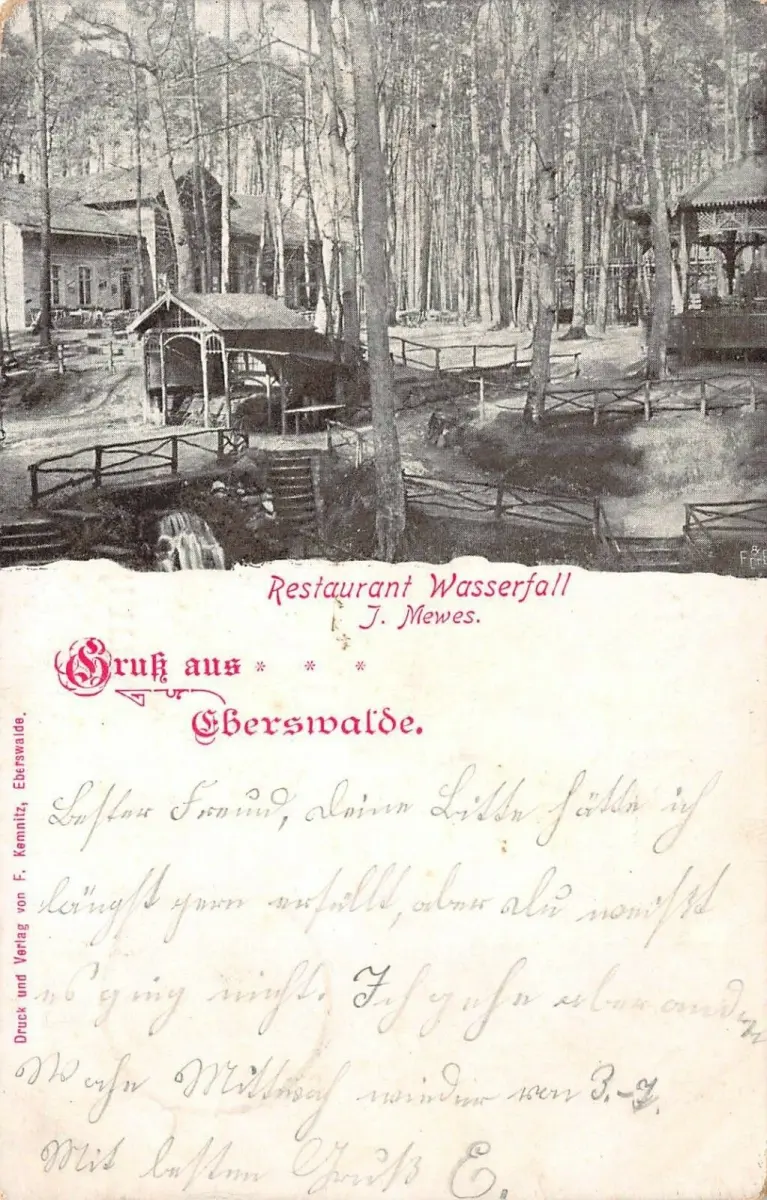 Restaurant Wasserfall
J. Mewes.
Gruß aus * * *
Eberswalde.
Druck und Verlag von F. Kemnitz, Eberswalde.
Bester Freund, deine Bitte hätte ich
längst gern erfüllt, aber du weißt
es ging nicht. Ich gehe aber
Woche Mittwoch wieder von 3.-7.
Mit besten Gruß E.